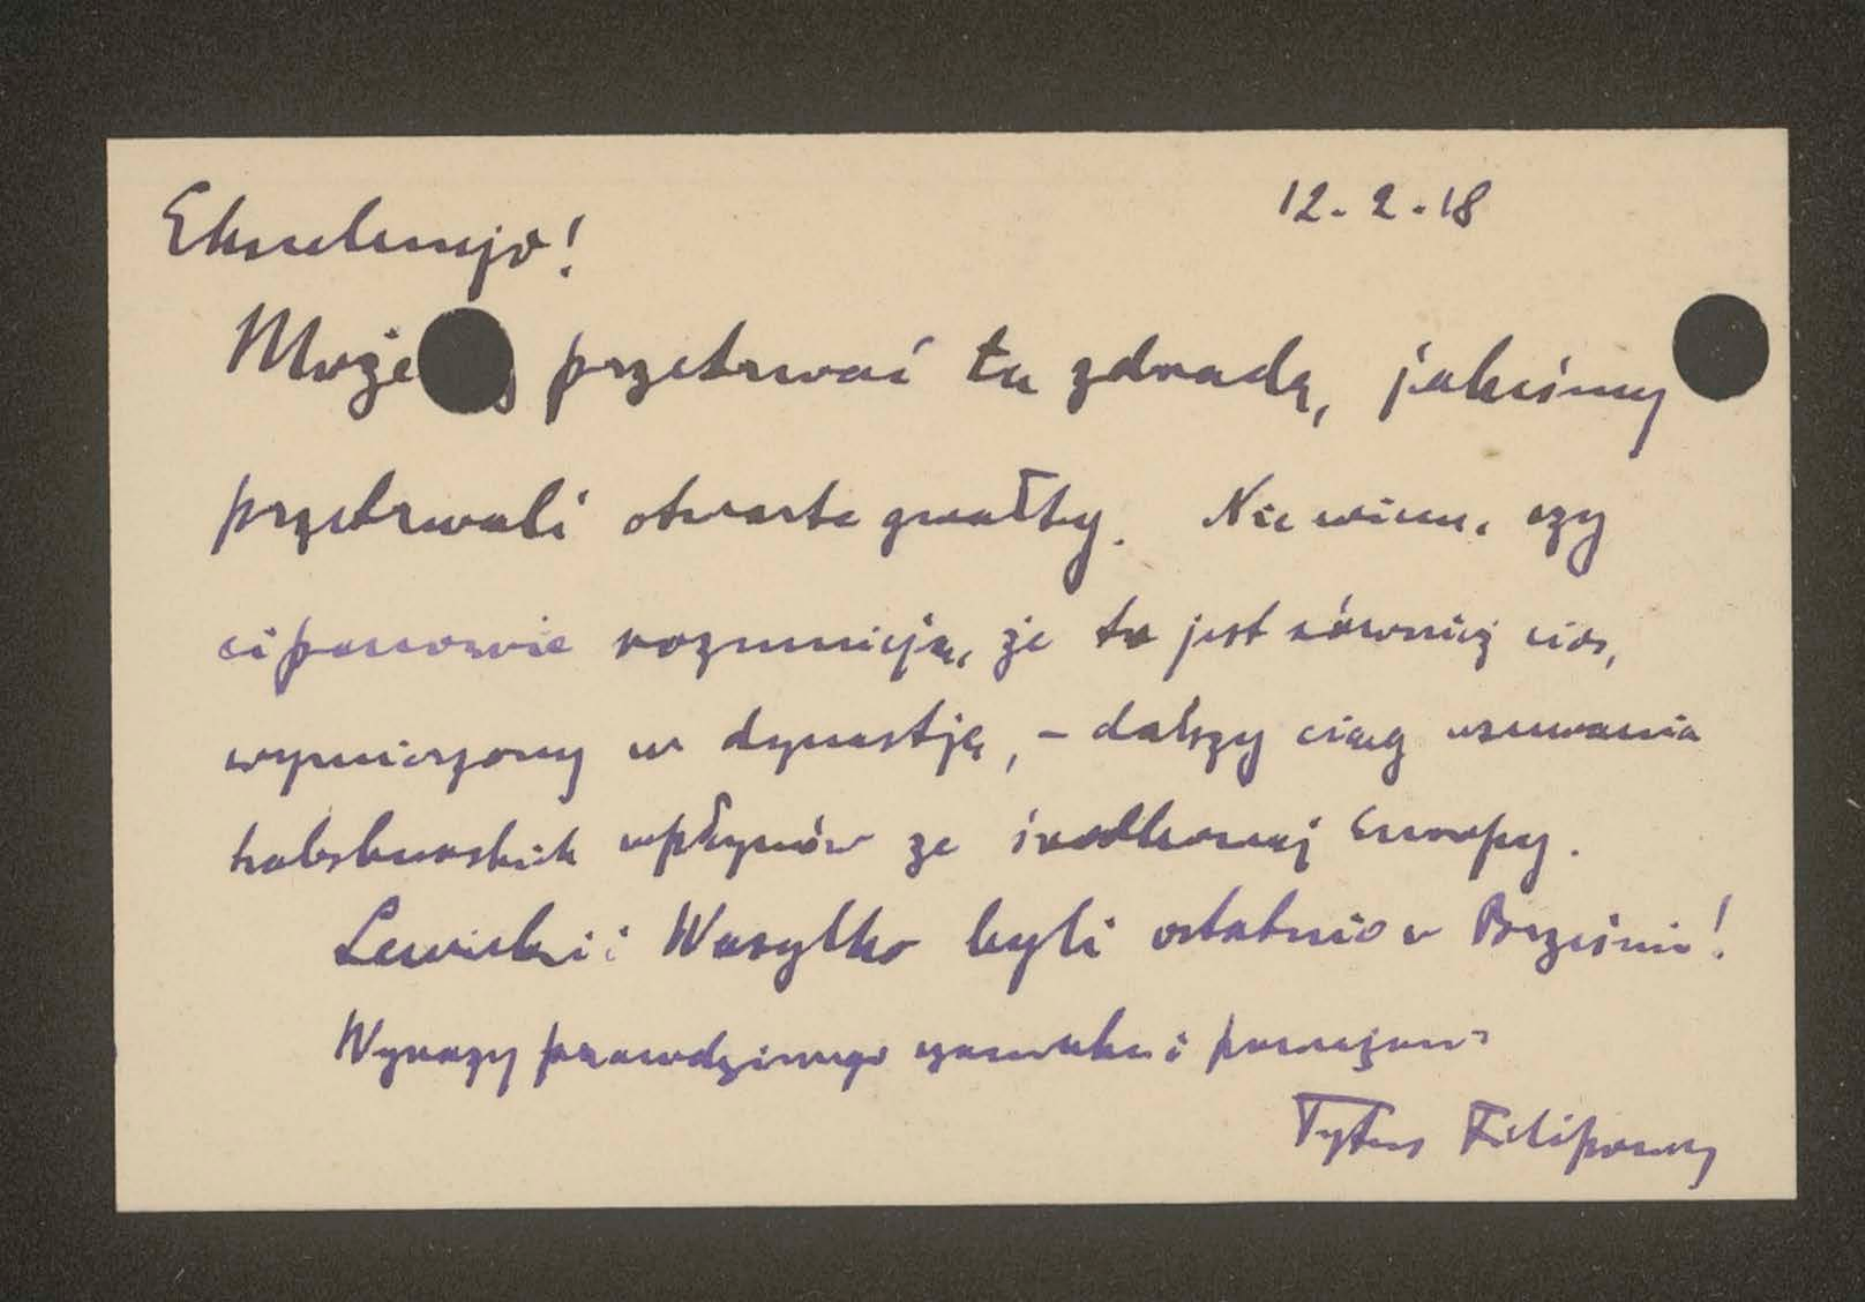 12.2.18
Ekscelencjo!
Może przetrwać tu zdradę, jakeśmy
przetrwali otwarte gwałty. Nie wiem, czy
ci panowie rozumieją, że to jest również cios,
wymierzony w dynastję, – dalszy ciąg usuwania
habsburskich wpływów ze środkowej Europy.
Lewicki i Wasylko byli ostatnio w Brześciu!
Wyrazy prawdziwego szacunku i poważania
Tytus Filipowicz